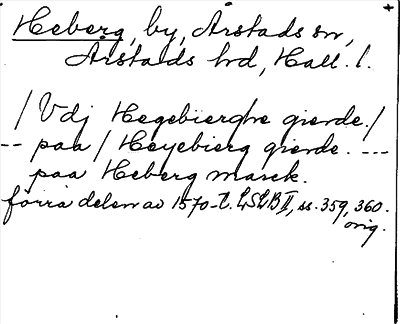 Heberg, by, Årstads sn,
Årstads hd, Hall. l.
/Vdj Hegebierghe gierde./
-- paa / Heyebierg gierde. ---
paa Heberg marck.
förra delen av 1570-t. LSLB II, ss. 359, 360.
orig.